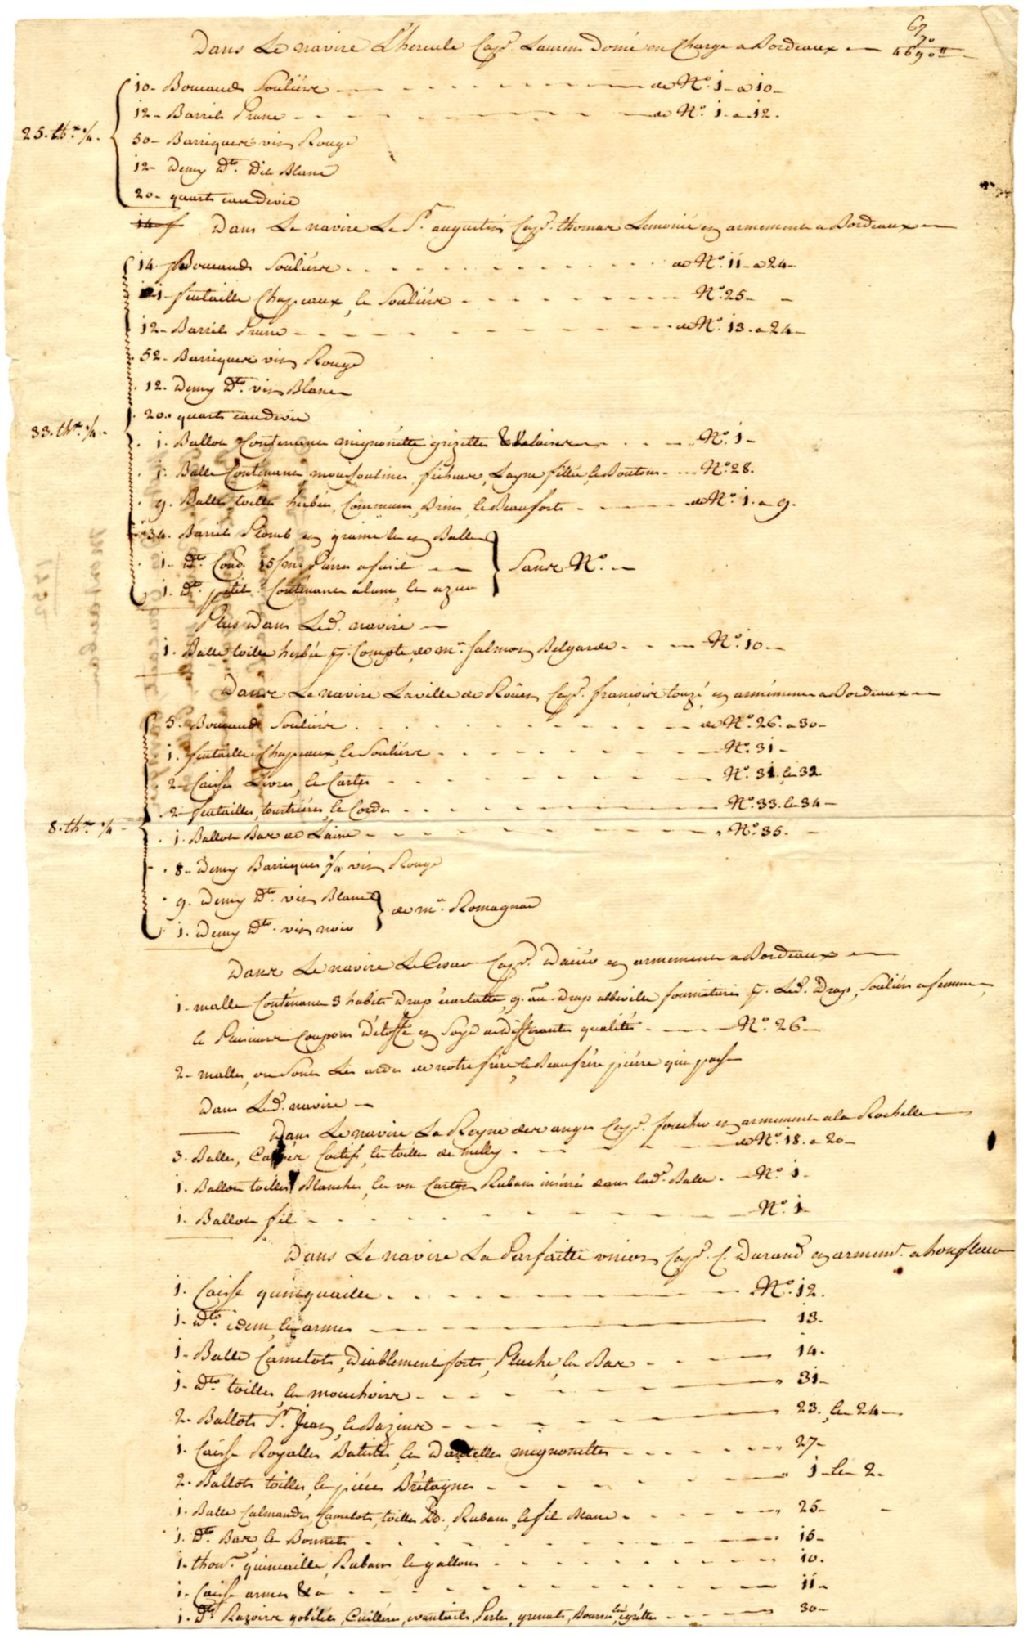 Dans Le navire L'hercule Cap.ᵉ Laurens Domé en Charge a Bordeaux
10 Boucauds Souliers de N.º 1 a 10
12 Barrils Prune de N.º 1 a 12.
25. th.ˣ ¼
50 Barriques vin Rouge
12 Demy D.º Dit Blanc
20 quarts eau devie
Dans Le navire Le S.ᵗ augustin Cap.ᵉ thomas Lemonié en armement a Bordeaux
14 Boucauds Souliers de N.º 11 a 24
1 futaille Chapeaux, & Souliers N.º 25
12 Barrils Prune de N.º 13 a 24
52 Barriques vin Rouge
12 Demy D.º vin Blanc
20 quarts eau devie
33. th.ˣ ¼
1. Ballot Contenant mignonette grizette & N.º 1
1. Balle Contenant mousselines, fichus, Layne fillée, & Boutons N.º 28.
9. Balles toilles herbée, Commun, Brin, & Beaufort de N.º 1. a 9.
34. Barrils Plomb en grain & en Balle
1. D.º Cont. Pierre a fusil
Sans N.º
1. D.º petit Contenant alun, & azur
Plus Dans Led. navire
1. Balle toilles herbée p.ʳ Compte de m.ʳ Salmon Belgarde N.º 10
Dans Le navire La ville de Roüen Cap.ᵉ françois touzé en armement a Bordeaux
5. Boucauds Souliers de N.º 26. a 30
1. futaille Chapeaux & Souliers N.º 31
2 Caisses Livres, & Cartes N.º 31 & 32
2 futailles, & Cordes N.º 33. & 34
8. th.ˣ ¼
1. Ballot Bas de Laine N.º 35.
8 Demy Barriques vin Rouge
9. Demy D.º vin Blanc
de m.ʳ Romagnac
1. Demy D.º vin noir
Dans Le navire Le Cap.ᵉ en armement a Bordeaux
1. malle Contenant 3 habits Drap écarlatte, 9. au. drap abbeville fourniture p.ʳ Led. Drap, Souliers a femme,
& Plusieurs Coupons d'étoffe en Soye de differantes qualités N.º 26
2 malles, ou Sont Les ordes de notre frère & Beaufrère pierre qui passe
Dans Led. navire
Dans Le navire La Reyne des anges Cap.ᵉ en armement a la Rochelle
3. Balles, & toilles de de N.º 18. a 20
1. Ballot toilles Blanches, & un Carton Rubans inséré dans lad.ᵉ Balle N.º 1
1. Ballot fil N.º 1
Dans Le navire La Parfaitte union Cap.ᵉ C. Durand en armem.ᵗ a honfleur
1. Caisse quinquaille N.º 12
1. D.º idem, & armes 13
1. Balle Camelots, Diablement forts, Pluche, & Bas 14
1. D.º toilles & mouchoirs 31
2. Ballots S.ᵗ Jean, & Bazins 23. & 24
1. Caisse Royalles Batiste, & Dentelles mignonettes 27
2. Ballots toilles, & pièces Brétagnes 1 & 2
1. Balle Calmandes, Camelots, toilles, Rubans, & fil Blanc 25
1. D.º Bas, & Bonnets 15
1. quincaille, Rubans, & gallons 10.
1. Caisse armes &ᵃ 11
1. D.º Razoirs gobelets, Cuillères, evantails, Perle, grenats, Bourse 30